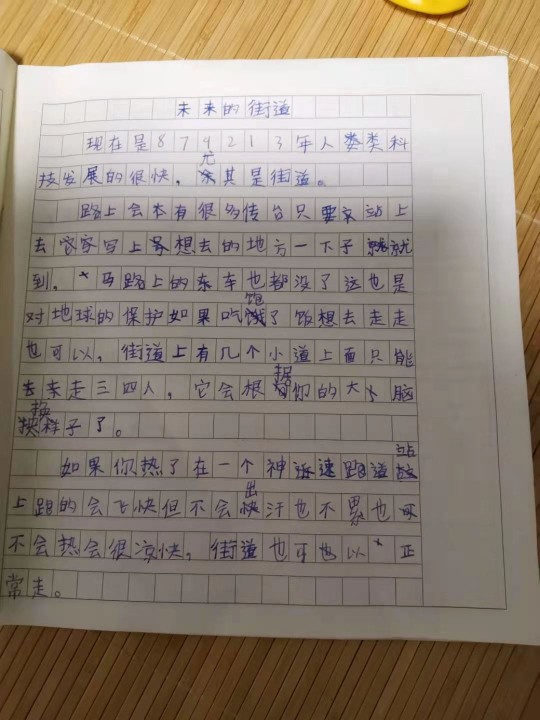 未来的街道
现在是874213年人类科
技发展的很快，尤其是街道。
路上会本有很多传台只要站上
去写上想去的地方一下子就
到。马路上的东车也都没了这也是
对地球的保护如果吃饱了饭想去走走
也可以，街道上有几个小道上面只能
去走三四人，它会根据你的大脑
换样子了。
如果你热了在一个神速跑道站
上跑的会飞快但不会出汗也不累也
不会热会很凉快，街道也可也以正
常走。